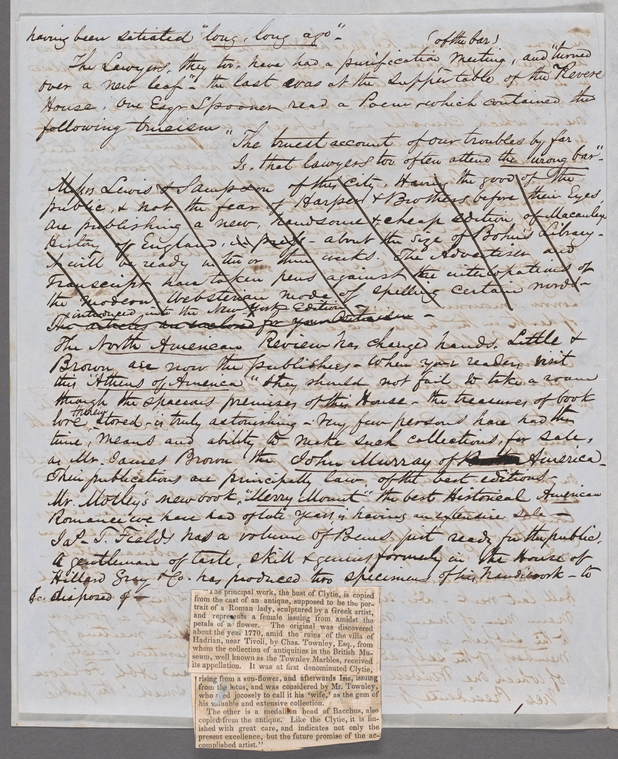 having been satisfied "long, long ago"-
(of the bar)
The Lawyers, they too have had a purification meeting, and "turned
over a new leaf" - the last was at the supper table of the Revere
House. One Esqr Spooner read a Poem which contained the
following truism "
The truest account of our troubles by far
Is, that lawyers too often attend the wrong bar"-
Messrs Lewis & Sampson of this City, Having the good of the
public, & not the fear of Harper & Brothers before their Eyes
are publishing a new, handsome & cheap edition of Macauley
History of England, - about the size of Bohn's Library-
It will be ready in two or three weeks. The Advertiser and
Transcript have taken pens against the interpolations of
the modern Websterian mode of spelling certain words-
introduced into the New York Edition-
The
The North American Review has changed hands. Little &
Brown are now the publishers - When your readers visit
this "Athens of America" they should not fail to take a roam
through the spacious premises of this House - the treasures of book
lore there stored - is truly astonishing - Very few persons have had the
time, means and ability to make such collections, for sale,
as Mr. James Brown the John Murray of America-
Their publications are principally law, of the best editions-
Mr. Motley's new book, "Merry Mount" the best Historical American
Romance we have had of late years, is having an extensive sale-
Jas. T. Fields has a volume of Poems just ready for the public.
A gentleman of taste, skill & genius formerly in the House of
Hilliard Gray & Co. has produced two specimens of his handiwork - to
be disposed of-
"The principal work, the bust of Clytie, is copied
from the cast of an antique, supposed to be the por-
trait of a Roman lady, sculptured by a Greek artist,
and represents a female issuing from amidst the
petals of a flower. The original was discovered
about the year 1770, amid the ruins of the villa of
Hadrian, near Tivoli, by Chas. Townley, Esq., from
whom the collection of antiquities in the British Mu-
seum, well known as the Townley Marbles, received
its appellation. It was at first denominated Clytie,
rising from a sun-flower, and afterwards Isis, issuing
from the lotus, and was considered by Mr. Townley,
who used jocosely to call it his 'wife,' as the gem of
his valuable and extensive collection.
The other is a medallion head of Bacchus, also
copied from the antique. Like the Clytie, it is fin-
ished with great care, and indicates not only the
present excellence, but the future promise of the ac-
complished artist."